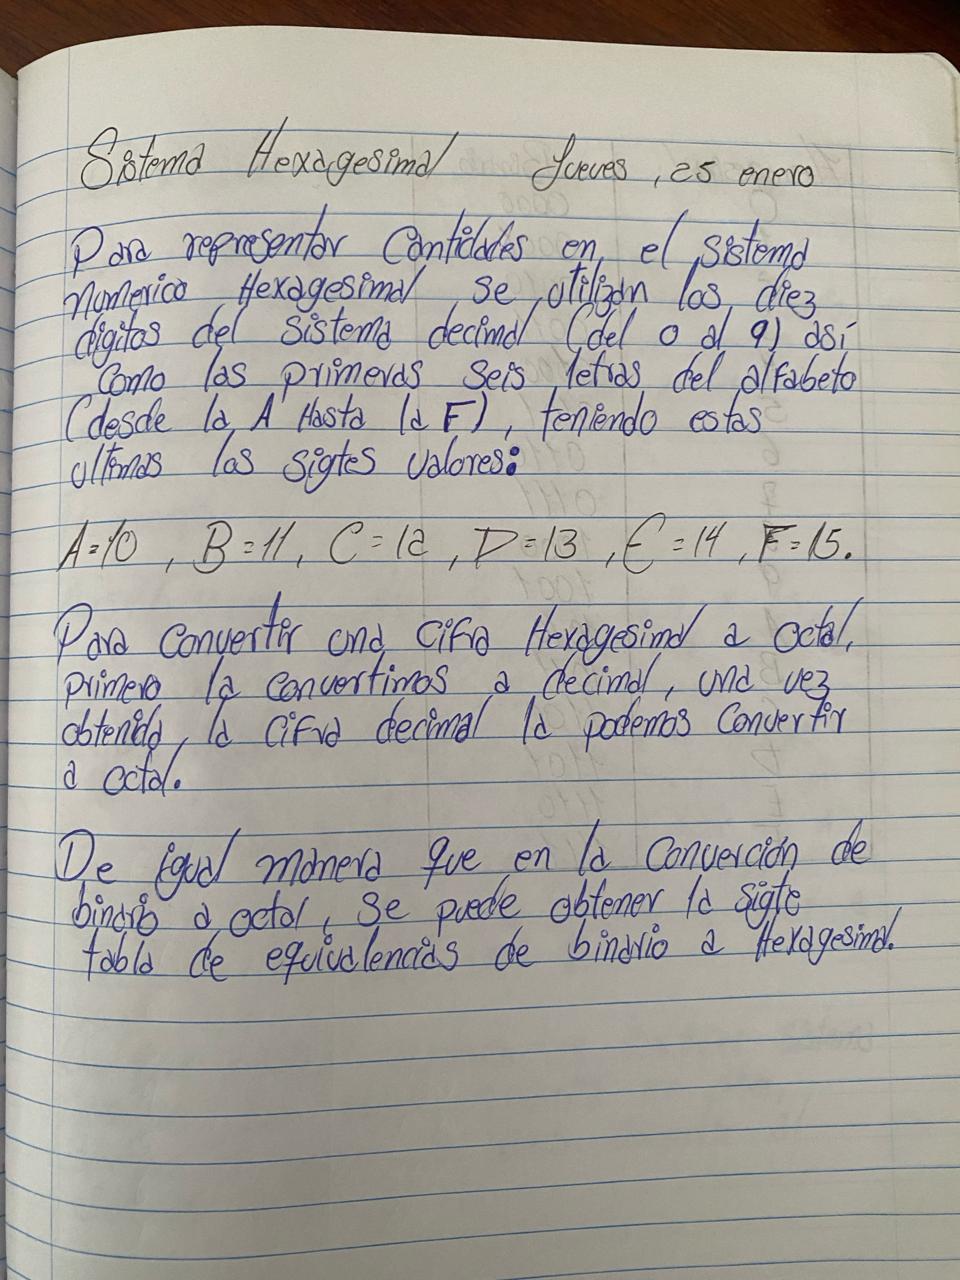 Sistema Hexagesimal Jueves, 25 enero
Para representar Cantidades en el Sistema
Numerico Hexagesimal se utilizan los diez
digitos del Sistema decimal (del 0 al 9) así
Como las primeras seis letras del alfabeto
(desde la A Hasta la F), teniendo estas
ultimas los sigtes valores:
A=10, B=11, C=12, D=13, E=14, F=15.
Para Convertir una Cifra Hexagesimal a octal,
primero la convertimos a decimal, una vez
obtenida, la cifra decimal la podemos Convertir
a octal.
De igual manera que en la Conversión de
binario a octal, Se puede obtener la sigte
tabla de equivalencias de binario a Hexagesimal.